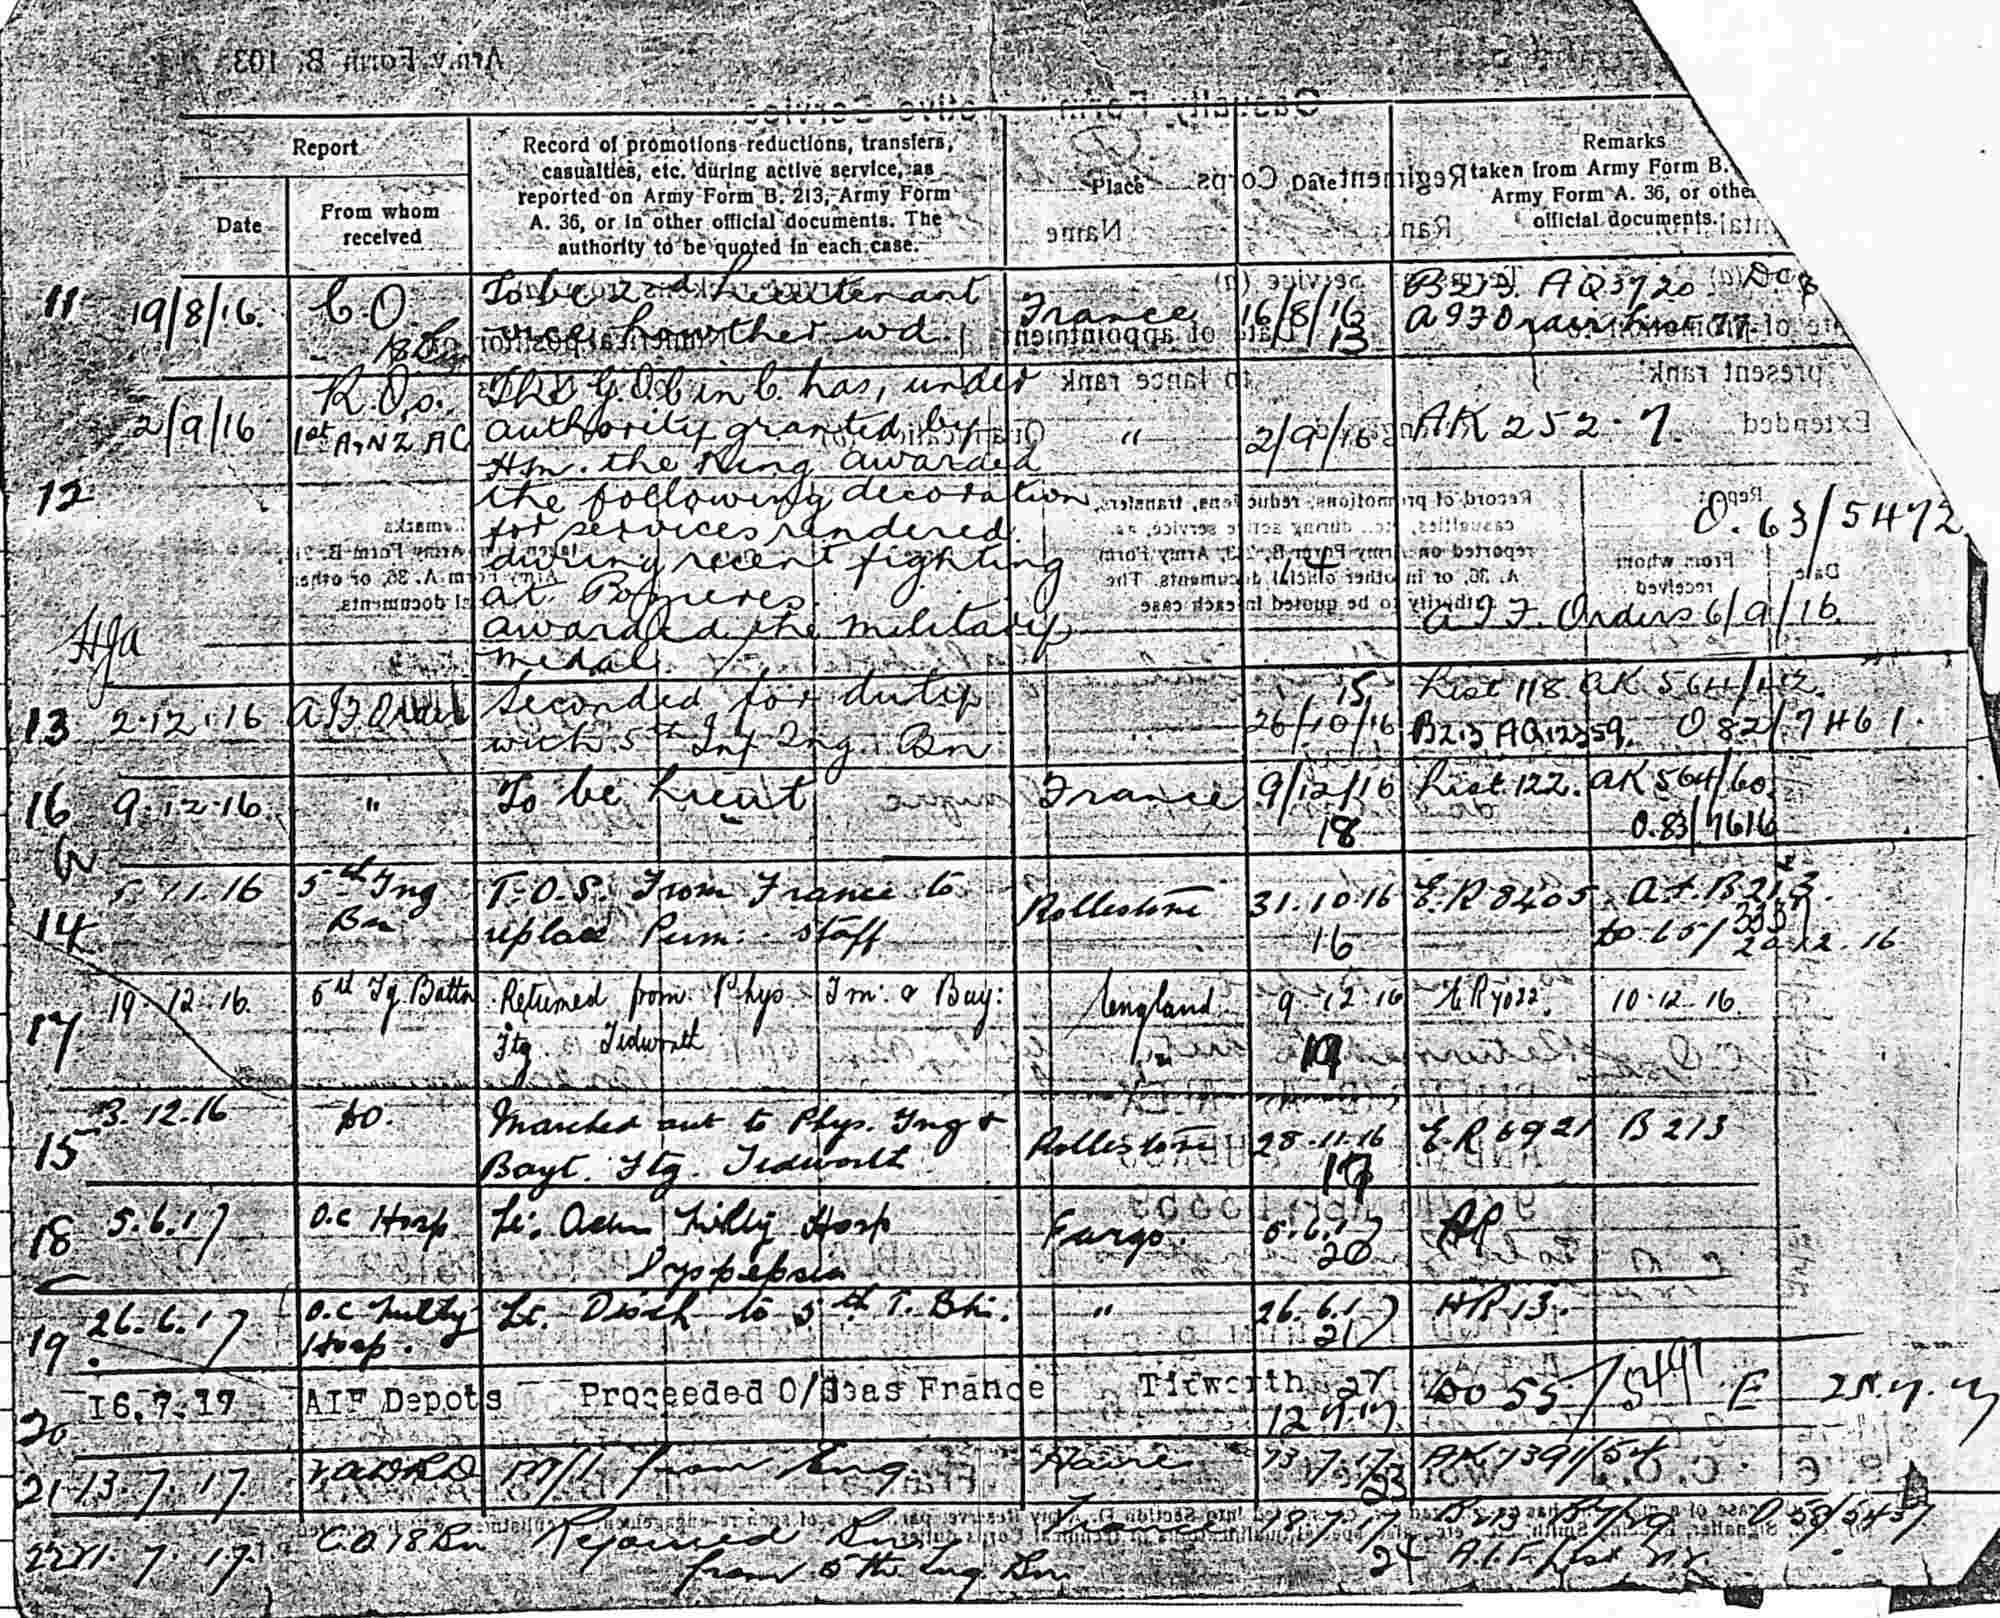 Army Form B. 103
Casualty Form Active Service.
Report
Date
From whom received
Record of promotions reductions, transfers,
casualties, etc. during active service, as
reported on Army Form B. 213, Army Form
A. 36, or in other official documents. The
authority to be quoted in each case.
Place
Date
Remarks
taken from Army Form B.
Army Form A. 36, or othe
official documents.
11 19/8/16. C.O. To be 2nd Lieutenant France 16/8/16 B213 AQ3720
18 Bn vice Lowther wd. 13 AIF Orders List 77
2/9/16 R.O.s. The G.O.C in C. has, under
1st A.NZ AC authority granted by " 2/9/16 AK 252.7.
Hm. the King awarded
12 the following decoration O. 63/5472
for services rendered
during recent fighting 14
at Pozieres
awarded the military A I F. Orders 6/9/16.
HJa medal
13 2.12.16 A.I.F Orders Seconded for duty 15 List 118. AK 564/42.
with 5th Inf Tng. Bn " 26/10/16 B213 AQ12359. O 82/7461.
16 9.12.16 " To be Lieut France 9/12/16 List.122. AK 564/60
18 0.83/7616
5.11.16 5th Tng T.O.S. From France to Rollestone 31.10.16 E.R 8405 A.F.B213
14 Bn replace Perm. Staff 16 20.12.16
17 19 12.16. 5th Tg. Battn Returned from Phys. Trn: & Bay: England 9 12 16 10.12.16
Ttg. Tidworth 19
15 3.12.16 DO. Marched out to Phys. Tng & Rollestone 28.11.16 E.R 6921 B 213
Bayt. Ftg. Tidworth 17
18 5.6.17 O.C Hosp Lt. Adm Milty Hosp Fargo. 5.6.17
Dyspepsia 20
19 26.6.17 O.C Milty Lt. Disch to 5th T. Bn. " 26.6.17 HR 13.
Hosp. 21
20 16.7.17 AIF Depots Proceeded O/Seas France Tidworth DO 55
12 7.17.
21 13.7.17 M/I from Eng. Havre 13.7.17 AK7391/54
23
22 21.7.17. C.O 18 Bn Rejoined Bn France 18.7.17 B213
from 5th Tng Bn. 24 A.I.F. List